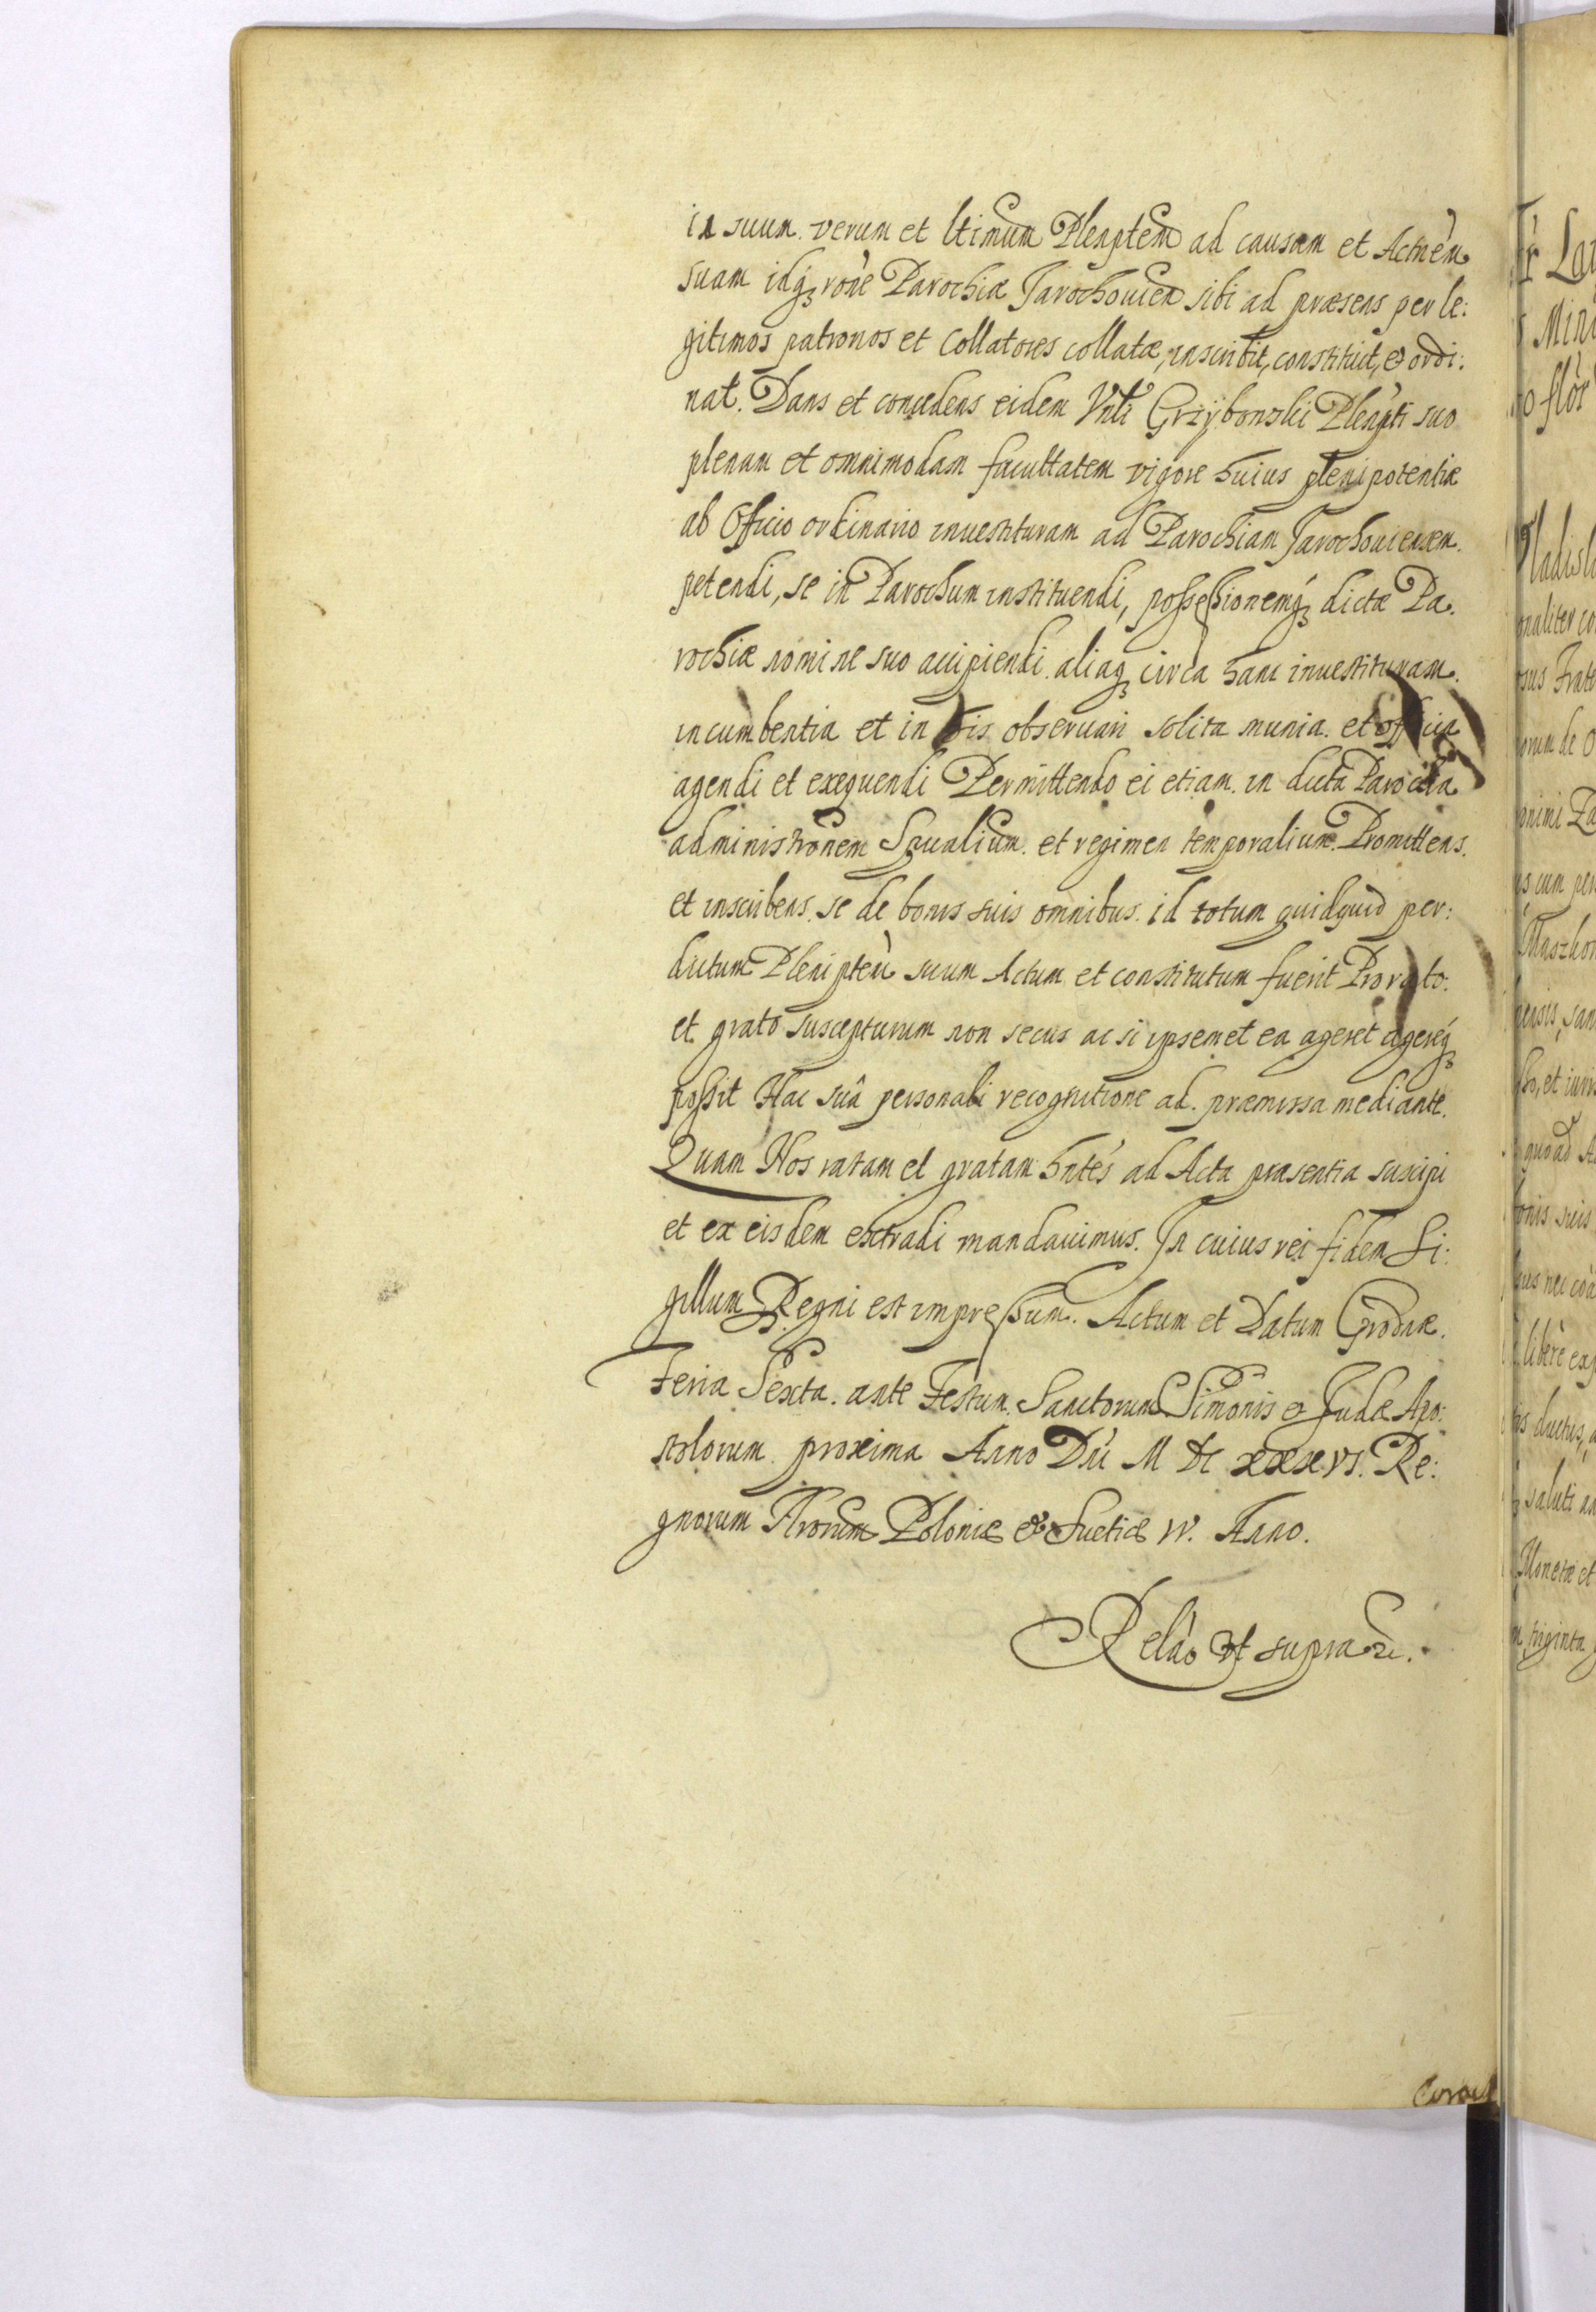 in suum verum et ltimum Plenptem ad causam et Actnem
suam idq; rõne Parochiæ Jarochouien sibi ad præsens per le:
gitimos patronos et Collatores collatæ, inscribit, constituit, & ordi:
nat. Dans et concedens eidem Vnli Grzÿbowski Plenpti suo
plenam et omnimodam facultatem vigore huius plenipotentiæ
ab Officio ordinario inuestituram ad Parochiam Jarochouiensem
petendi, se in Parochum instituendi, possessionemq; dictæ Pa:
rochiæ nomine suo accipiendi aliaq; circa hanc inuestituram
incumbentia et in his obseruari solita munia et officia
agendi et exequendi Permittendo ei etiam in dicta Parochia
administrõnem Spualium et regimen temporalium. Promittens
et inscribens se de bonis suis omnibus id totum quidquid per:
dictum Plenipteũ suum Actum et constitutum fuerit Pro rato
et grato suscepturum non secus ac si ipsemet ea ageret agereq;
possit Hac suâ personali recognitione ad præmissa mediante.
Quam Nos ratam et gratam hntes ad Acta præsentia suscipi
et ex eisdem extradi mandauimus. In cuius rei fidem Si:
gillum Regni est impressum. Actum et Datum Grodnæ
Feria Sexta ante Festum Sanctorum Simonis & Judæ Apo:
stolorum proxima Anno Dni M DC XXXVI. Re:
gnorum Nrorum Poloniæ & Suetiæ IV. Anno.
Relão vt supra